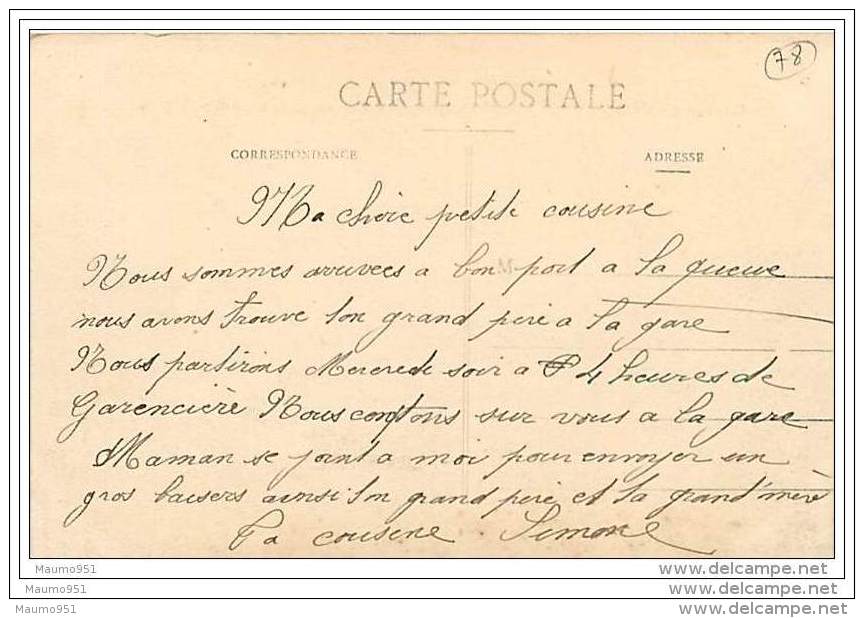 78
CARTE POSTALE
CORRESPONDANCE
ADRESSE
Ma chère petite cousine
Nous sommes arrivées a bon port a la queue
nous avons trouve ton grand père a la gare
Nous partirons Mercredi soir a 4 heures de
Garencière Nous comptons sur vous a la gare
Maman se joint a moi pour envoyer un
gros baisers ainsi ton grand père et ta grand'mère
Ta cousine Simone
Maumo951
www.delcampe.net
Maumo951
www.delcampe.net
Maumo951
www.delcampe.net